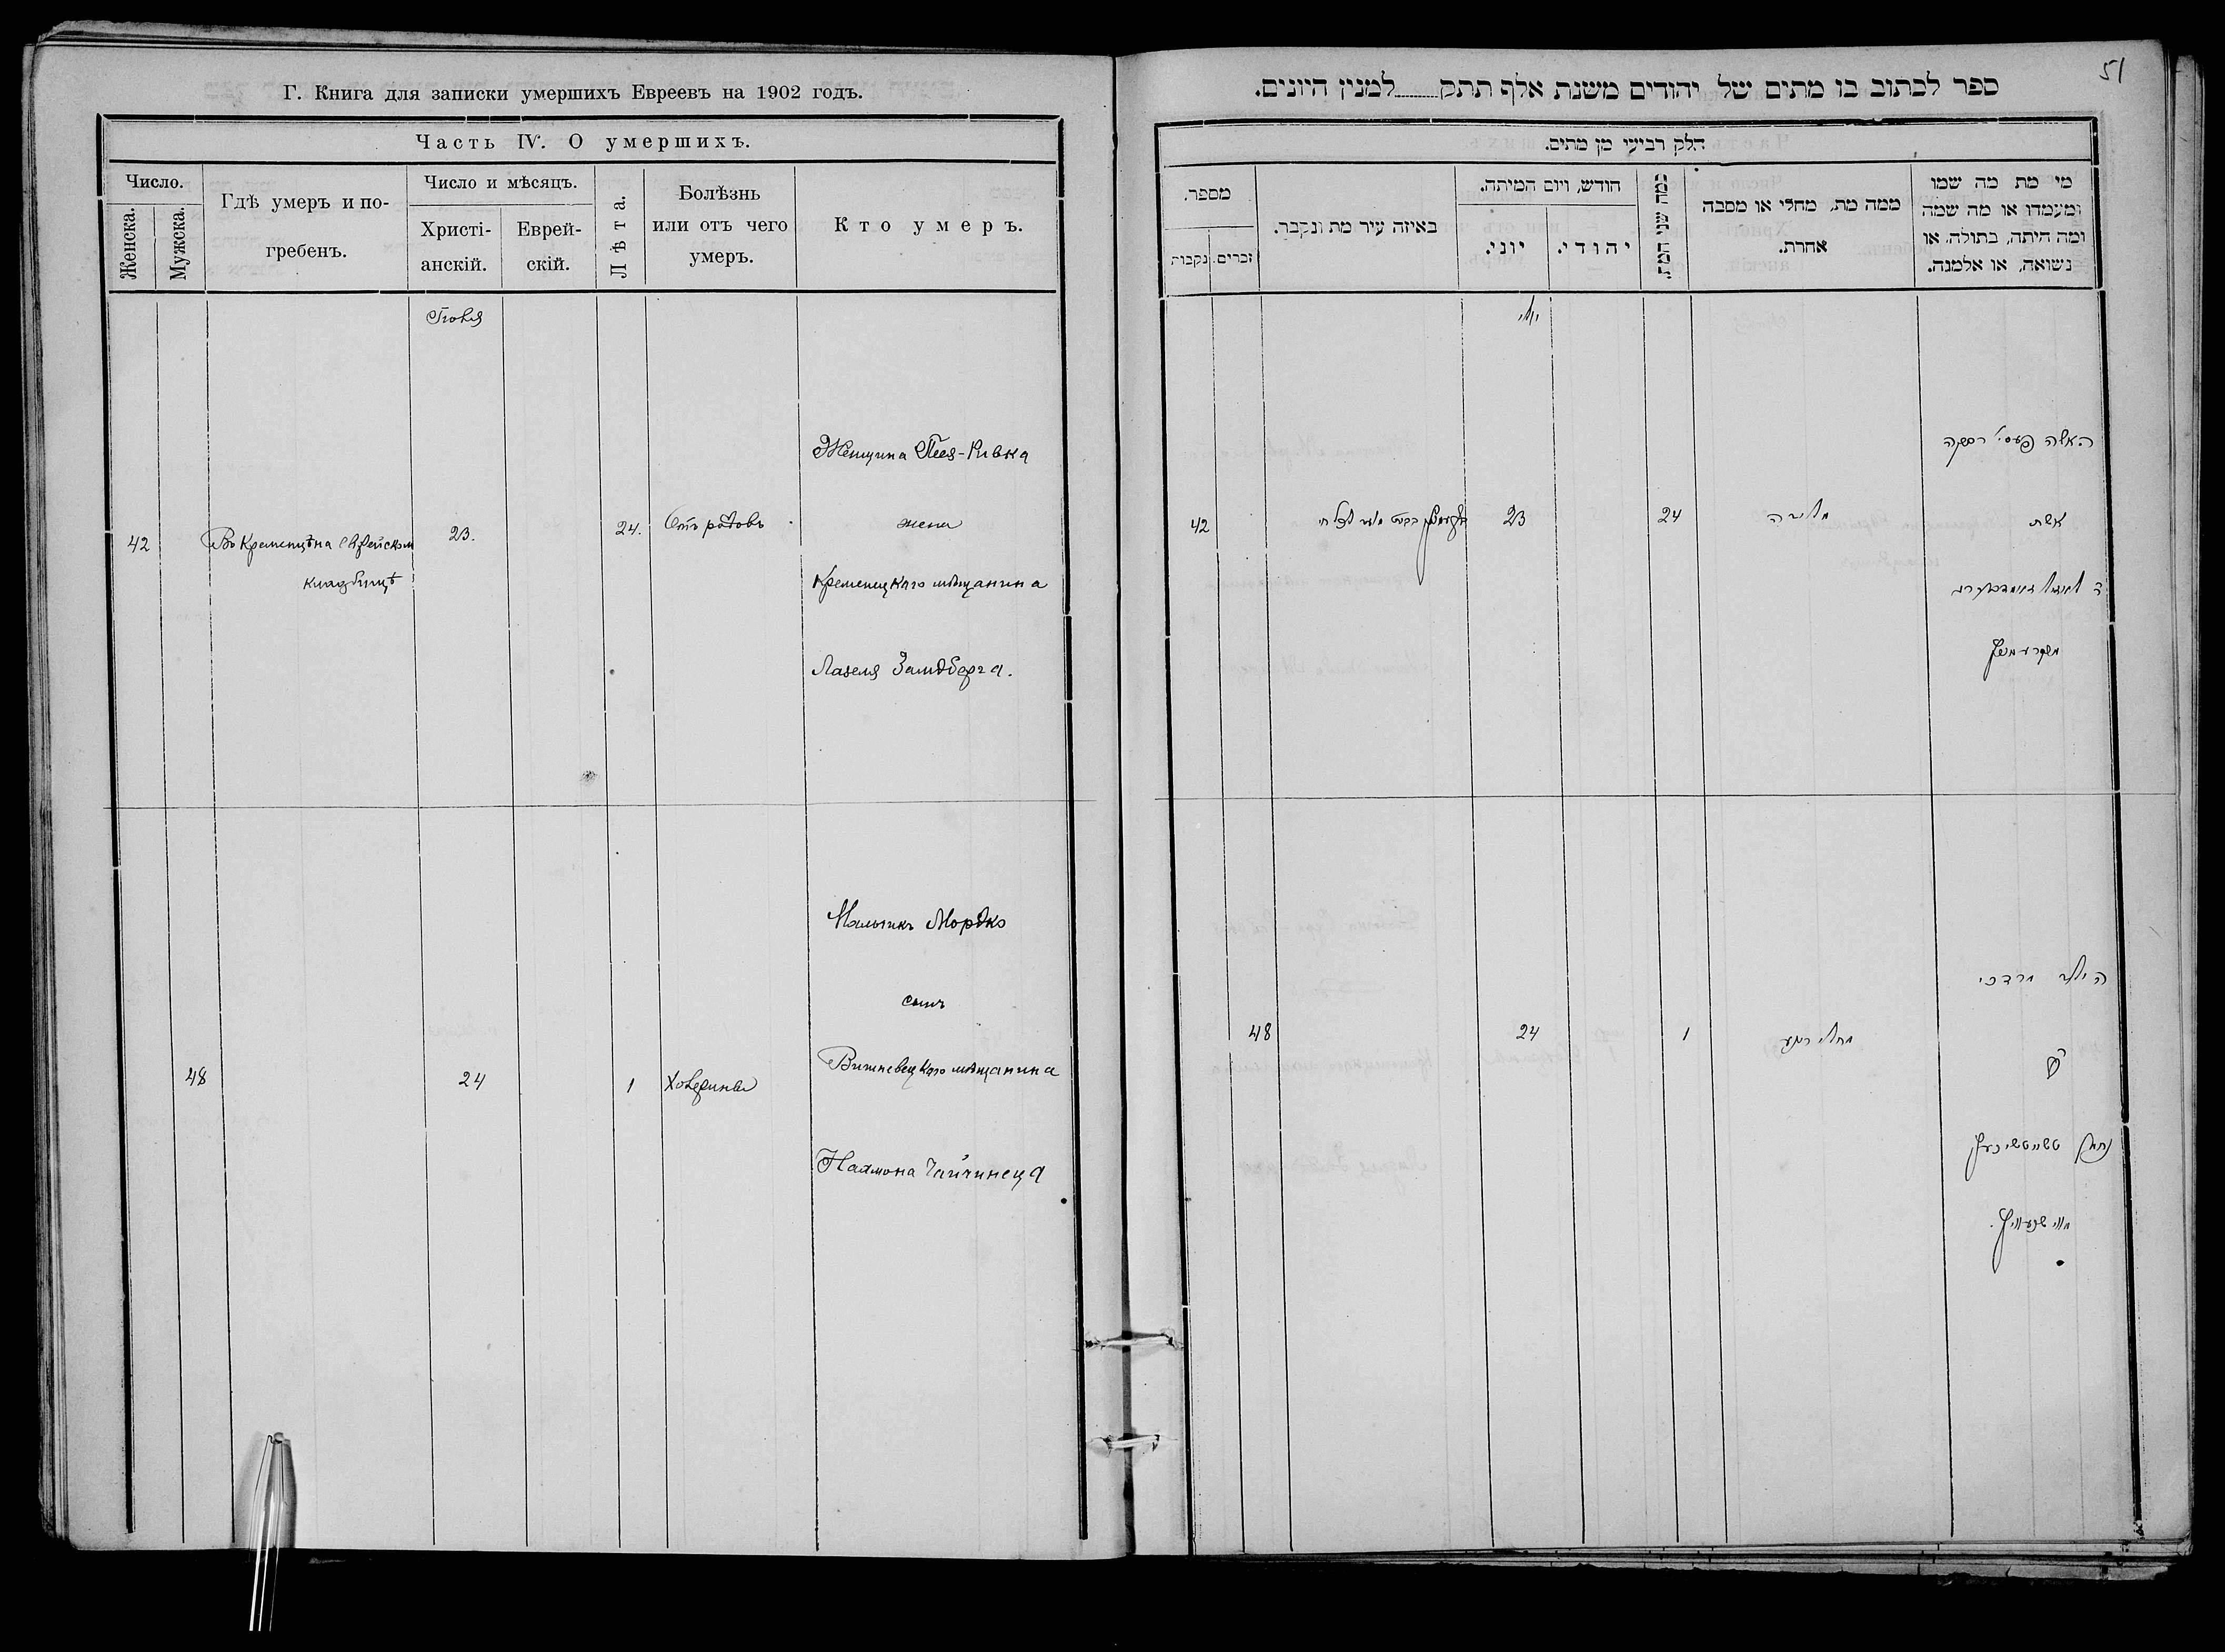 Г. Книга для записки умершихъ Евреевъ на 1902 годъ.
Часть IV. О умершихъ.
Число.
Женска.
Мужска.
Гдѣ умеръ и по-
гребенъ.
Число и мѣсяцъ.
Христі-
анскій.
Еврей-
скій.
Лѣта.
Болѣзнь
или отъ чего
умеръ.
Кто умеръ.
Іюля
Женщина Песя-Ривка
42
Въ Кременцѣ на еврейском
кладбищѣ
23.
24.
Отъ родовъ
жена
Кременецкаго мѣщанина
Лазеля Замдберга.
Мальчикъ Мордко
сынъ
48
24
1
Вишневецкаго мѣщанина
Нахмона Чайчинеца
51
ספר לכתוב בו מתים של יהודים משנת אלף תתק למנין היונים.
חלק רביעי מן מתים.
מספר.
נקבות
זכרים.
באיזה עיר מת ונקבר.
חודש, ויום המיתה.
יוני.
יהודי.
כמה שני המת.
ממה מת, מחלי או מסבה
אחרת.
מי מת מה שמו
ומעמדו או מה שמה
ומה היתה, בתולה, או
נשואה, או אלמנה.
יולי
האשה פעסי רבקה
42
23
24
אשת
הילד מרדכי
48
24
1